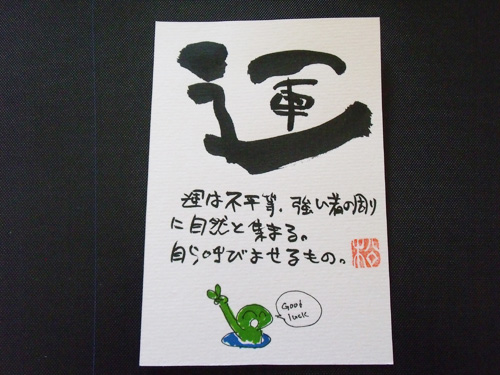 運
運は不平等、強い者の剛
に自然と集まる。
自ら呼びよせるもの。
松
Goot
luck